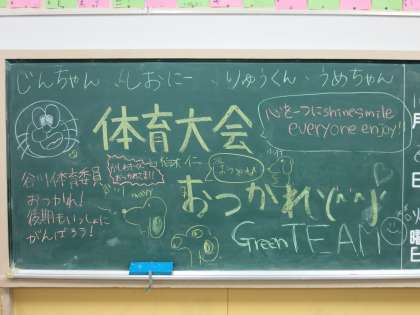 じんちゃん しおにー りゅうくん うめちゃん
体育大会
心を一つにshine smile
everyone enjoy!
谷川体育委員
おつかれ!
後期もいっしょに
がんばろう!
おつかれ\(^^)/
Green TEAM
月
日
曜
日